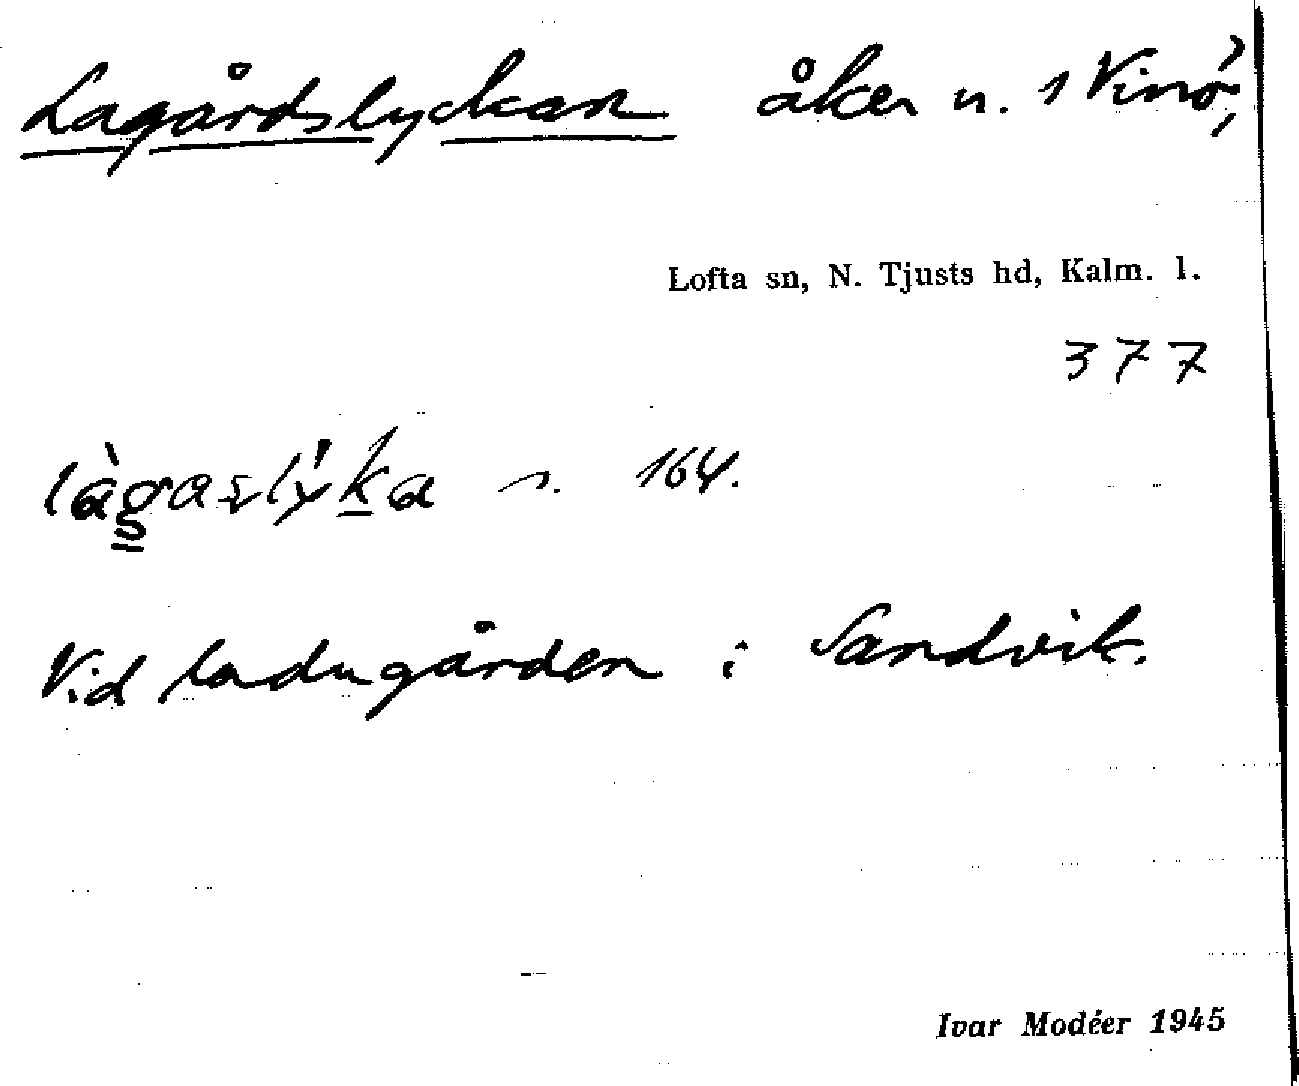 Lagårdslyckan åker n. 1 Vinö,
Lofta sn, N. Tjusts hd, Kalm. l.
377
s. 164.
Vid ladugården i Sandvik.
Ivar Modéer 1945